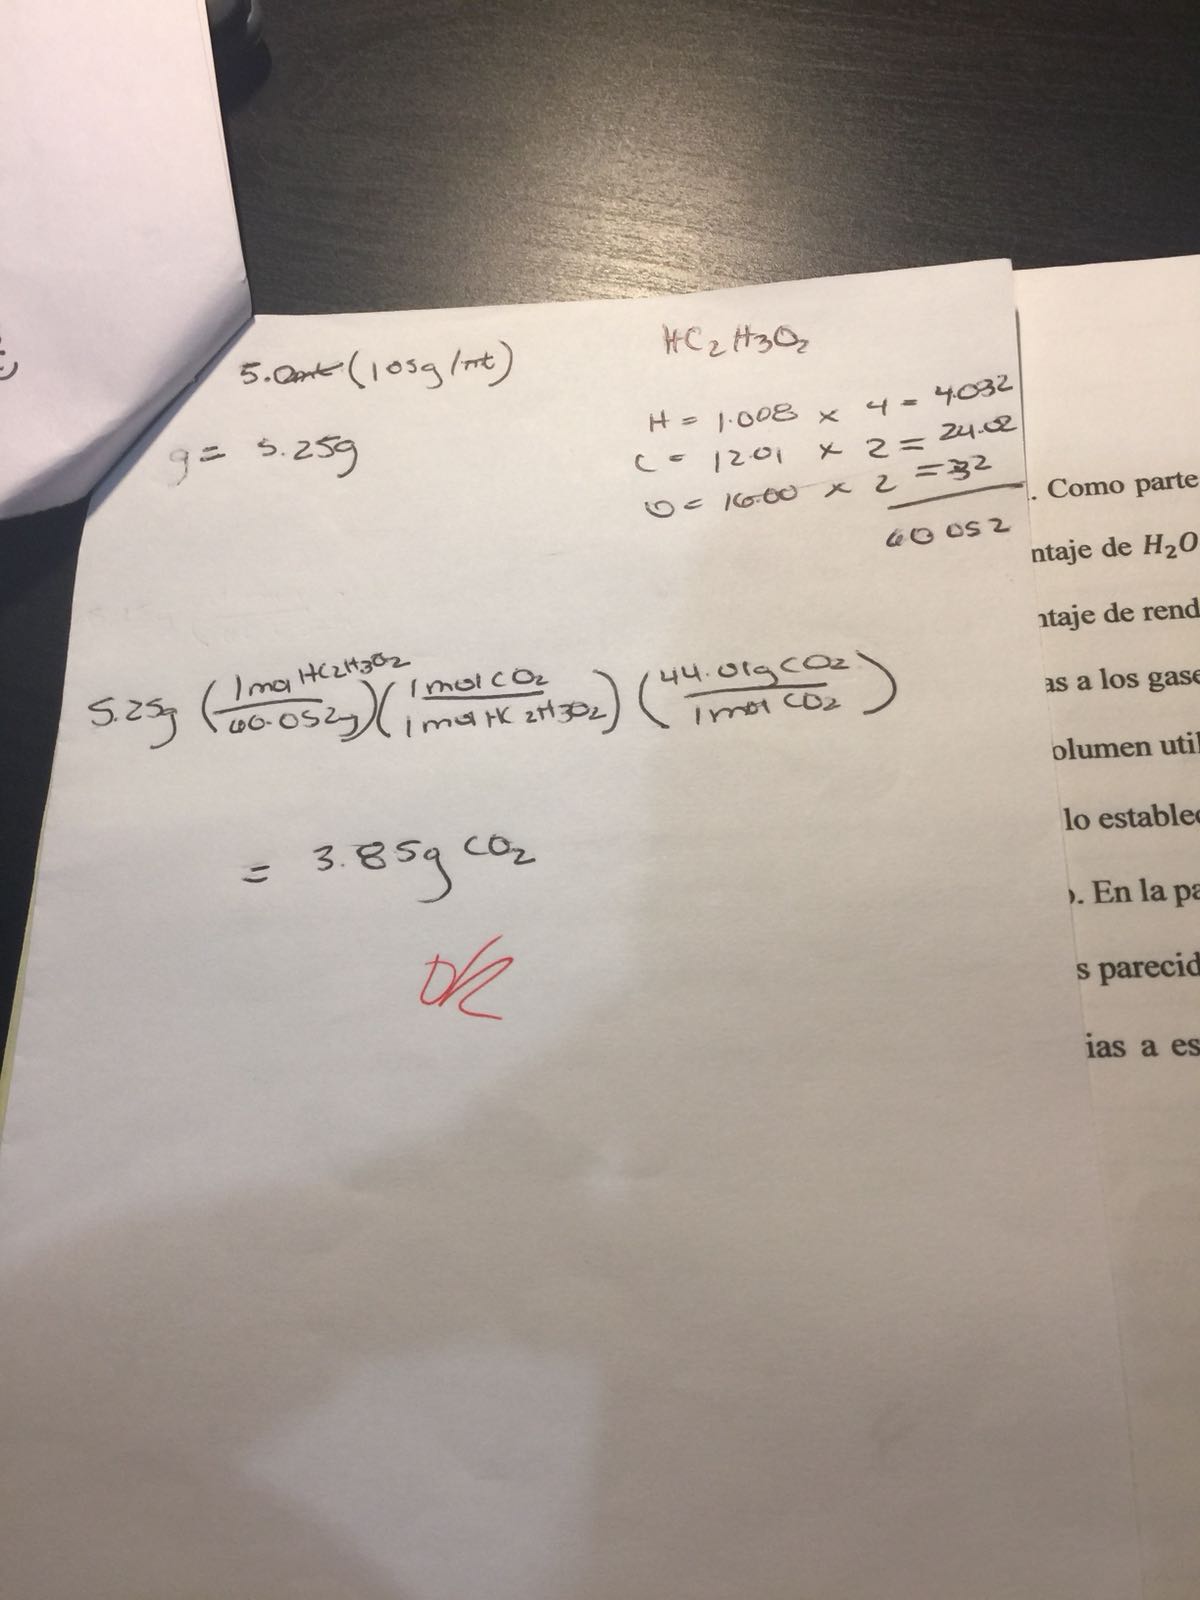 5.0mL (1.05g/mL)
g = 5.25g
HC2H3O2
H = 1.008 x 4 = 4.032
C = 12.01 x 2 = 24.02
O = 16.00 x 2 = 32
60.052
5.25g (1mol HC2H3O2/60.052g)(1mol CO2/1mol HC2H3O2)(44.01g CO2/1mol CO2)
= 3.85g CO2
OK
. Como parte
ntaje de H2O
ntaje de rend
as a los gase
olumen util
lo establec
. En la pa
s parecid
ias a es